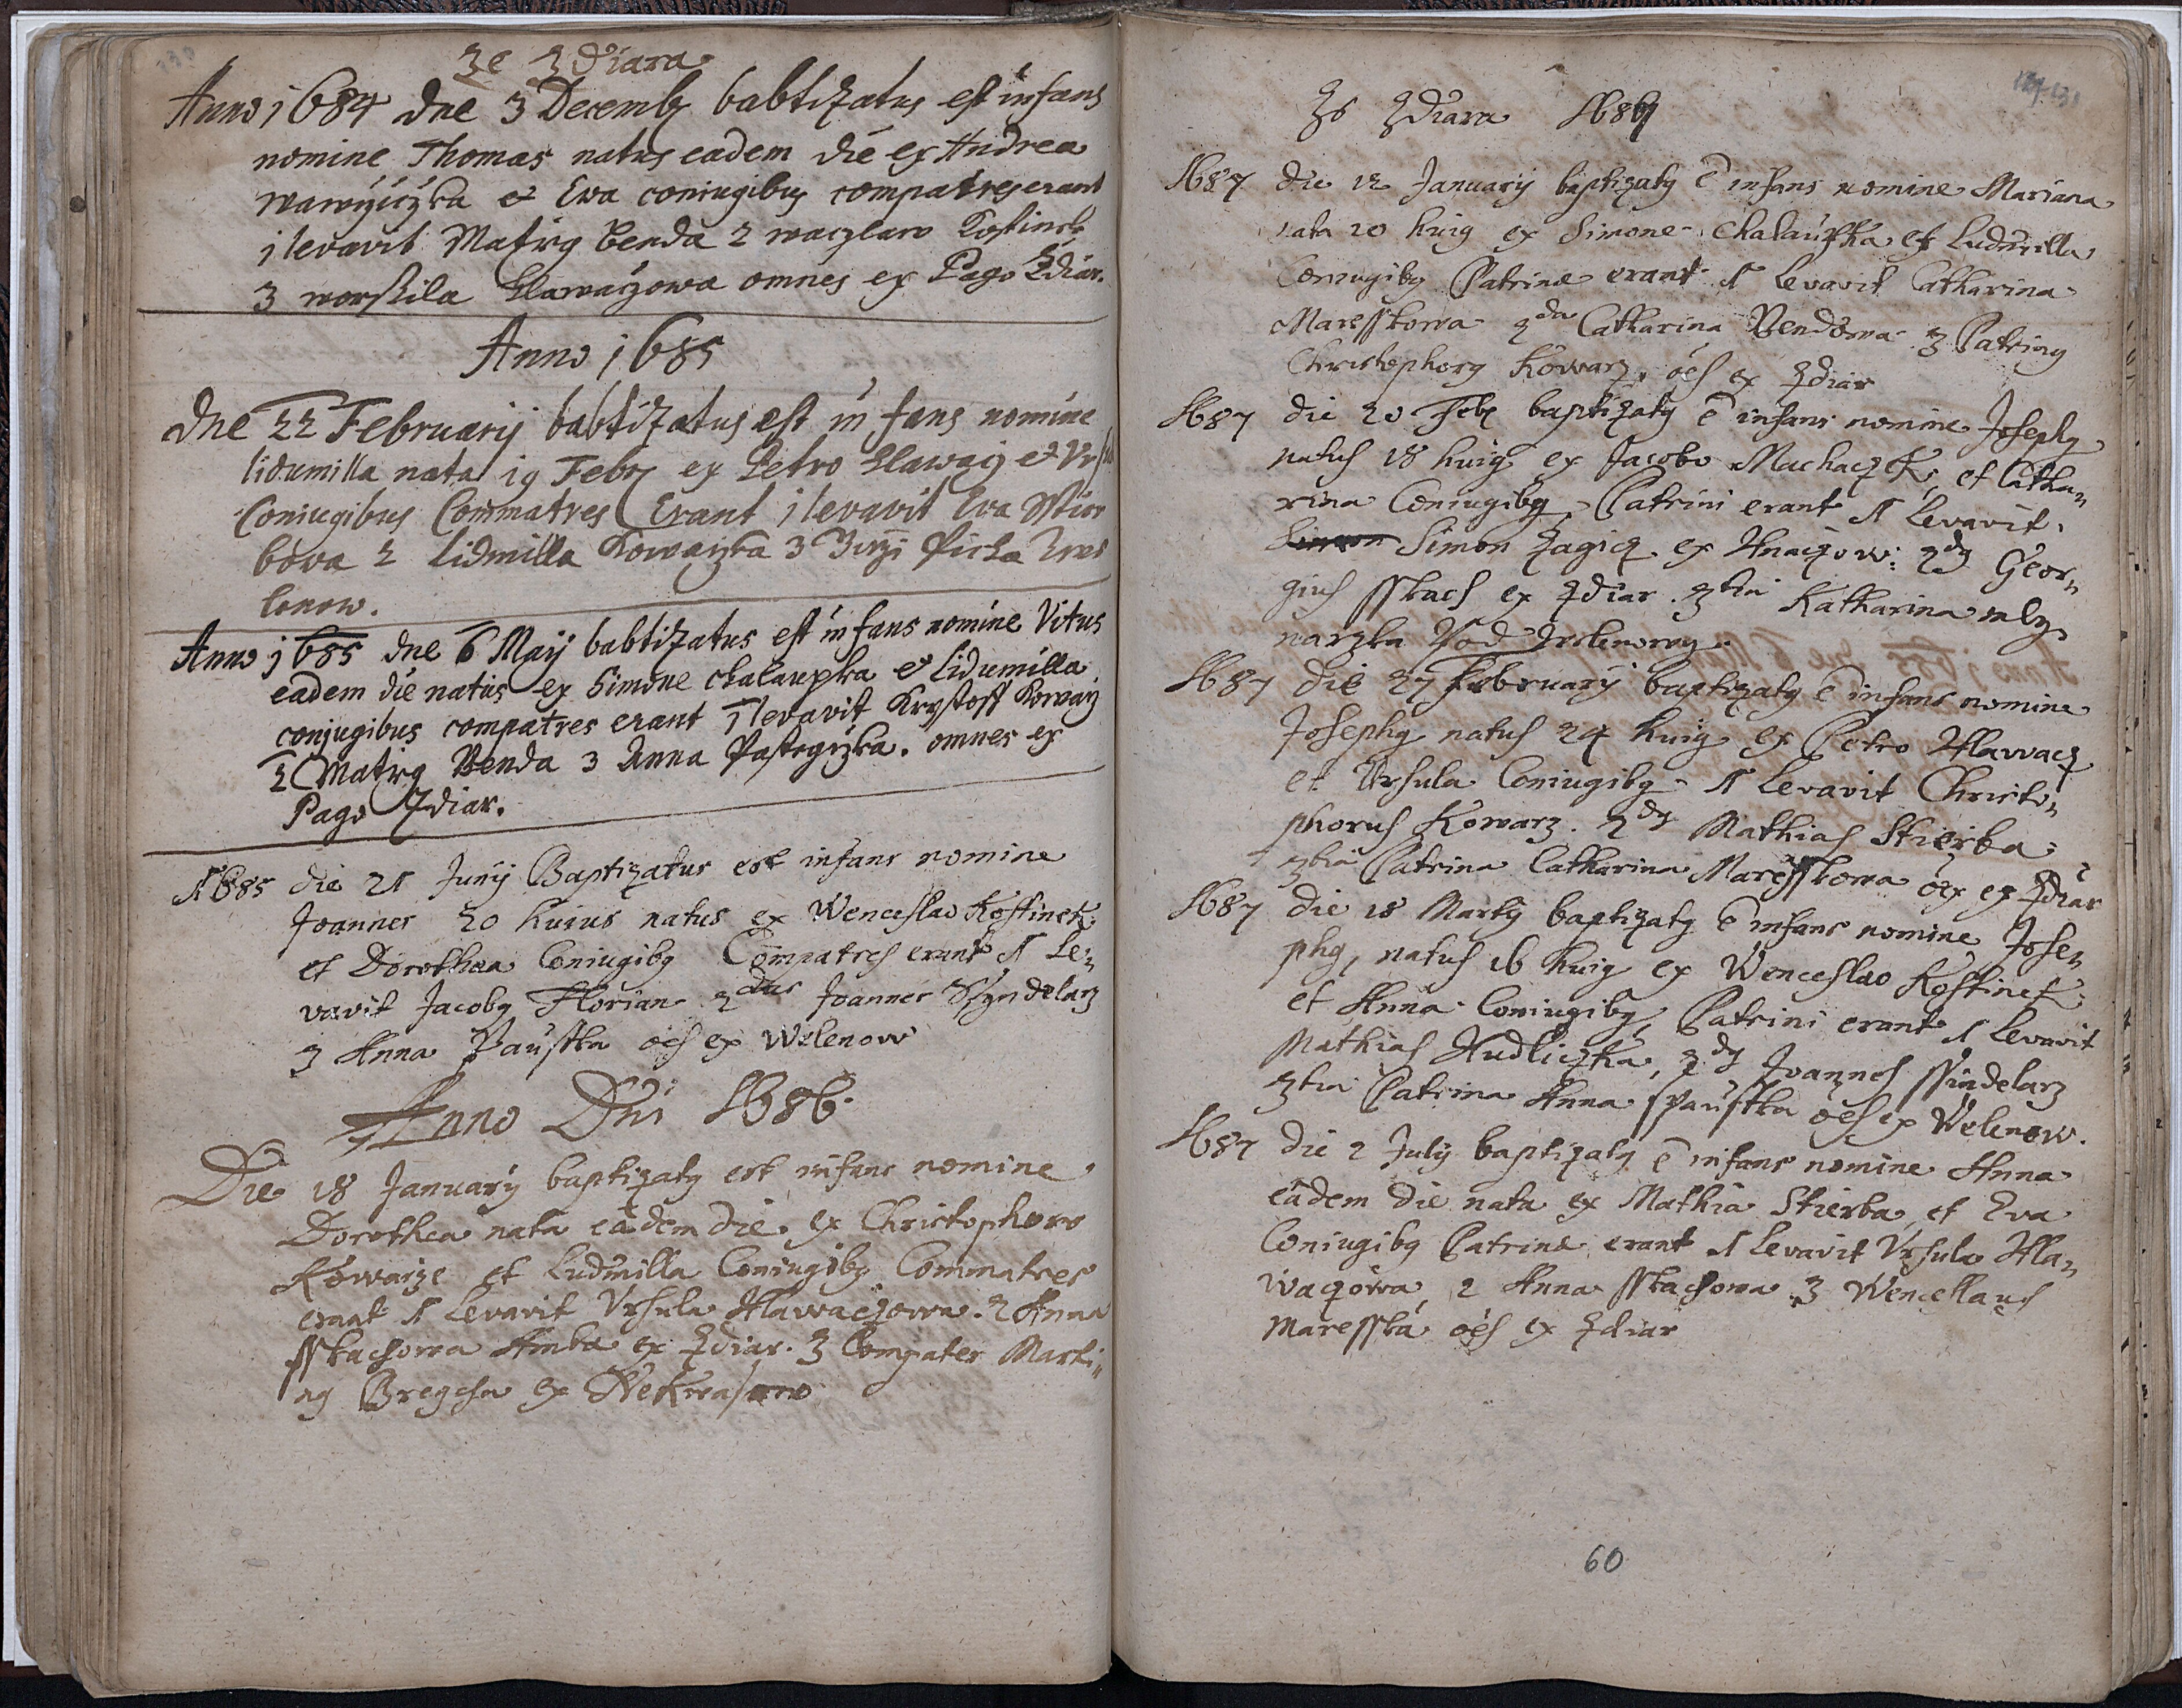 130
Ze Zdiara
Anno 1684 die 3 Decemb babtizatus est infans
nomine Thomas natus eadem die ex Andrea
et Ewa coniugibus compatres erant
1 levavit Matieg Benda 2 waczlaw Kostinek
3 worssila hlawaczowa omnes ex Pago Zdiar.
Anno 1685
Die 22 Februarij babtizatus est in fans nomine
lidumilla nata 19 Febr ex Petro hlawacz et
Coniugibus Commatres Erant 1 levavit Eva Stier
bova 2 Lidmilla Kowarzka 3 Jirzi Picha
lenow.
Anno 1685 die 6 Maij babtizatus est in fans nomine Vitus
eadem die natus ex Simone chalaupka et Lidumilla
conjugibus compatres erant 1 levavit Krystoff Kowarz
2 Matieg Benda 3 Anna omnes ex
Pago Zdiar.
1685 die 21 Junij Baptizatus est infans nomine
Joannes 20 huius natus ex Wenceslao Kostinek
et Dorothaea Coniugibg Compatres erant 1 Le:
vavit Jacobg Florian 2dus Joannes Szyndelarz
3 Anna Paustka oes ex Welenow
Anno Dni 1686.
Die 18 January baptizatg est infans nomine
Dorothea nata eadem die ex Christophoro
Kowarze et Ludmilla Coniugibg Commatres
erant 1 Levavit Vrsula Hlawaczowa. 2 Anna
sskachowa Ambae ex Zdiar. 3 Compater Marti„
ng Bregcha ex Nekwasowo
131
Ze Zdiara 1687
1687 die 12 January baptizatg e infans nomine Mariana
nata 10 huig ex Simone Chalaupka et Ludmilla
Coniugibg Patrinae erant 1 Levavit Catharina
Maresskowa 2da Catharina Bendowa 3 Patring
Christophorg Kowarz, oes ex Zdiar
1687 die 20 Feb baptizatg e infans nomine Josephg
natus 18 huig ex Jacobo Machaczek, et Catha„
rina Coniugibg Patrini erant 1 Levavit.
Simon Simon Zagicz ex Hnaczow: 2dg Geor„
gius sskach ex Zdiar. 3tia Katharina mly„
narzka Pod
1687 die 27 February baptizatg e infans nomine
Josephg natus 24 huig ex Petro Hlawacz
et Vrsula Coniugibg 1 Levavit Christo„
phorus Kowarz. 2dg Mathias Stierba
3tia Patrina Catharina Maresskowa oes ex Zdiar
1687 die 18 Martij baptizatg e infans nomine Jose„
phg, natus 16 huig ex Wenceslao Kostinek
et Anna Coniugibg, Patrini erant 1 Levavit
Mathias Hudliczka, 2dg Joannes ssindelarz
3tia Patrina Anna Paustka oes ex Welenow.
1687 die 2 July baptizatg e infans nomine Anna
eadem die nata ex Mathia Stierba et Eva
Coniugibg Patrinae erant 1 Levavit Vrsula Hla„
waczowa, 2 Anna sskachowa 3 Wenceslaus
maresska oes ex Zdiar
60